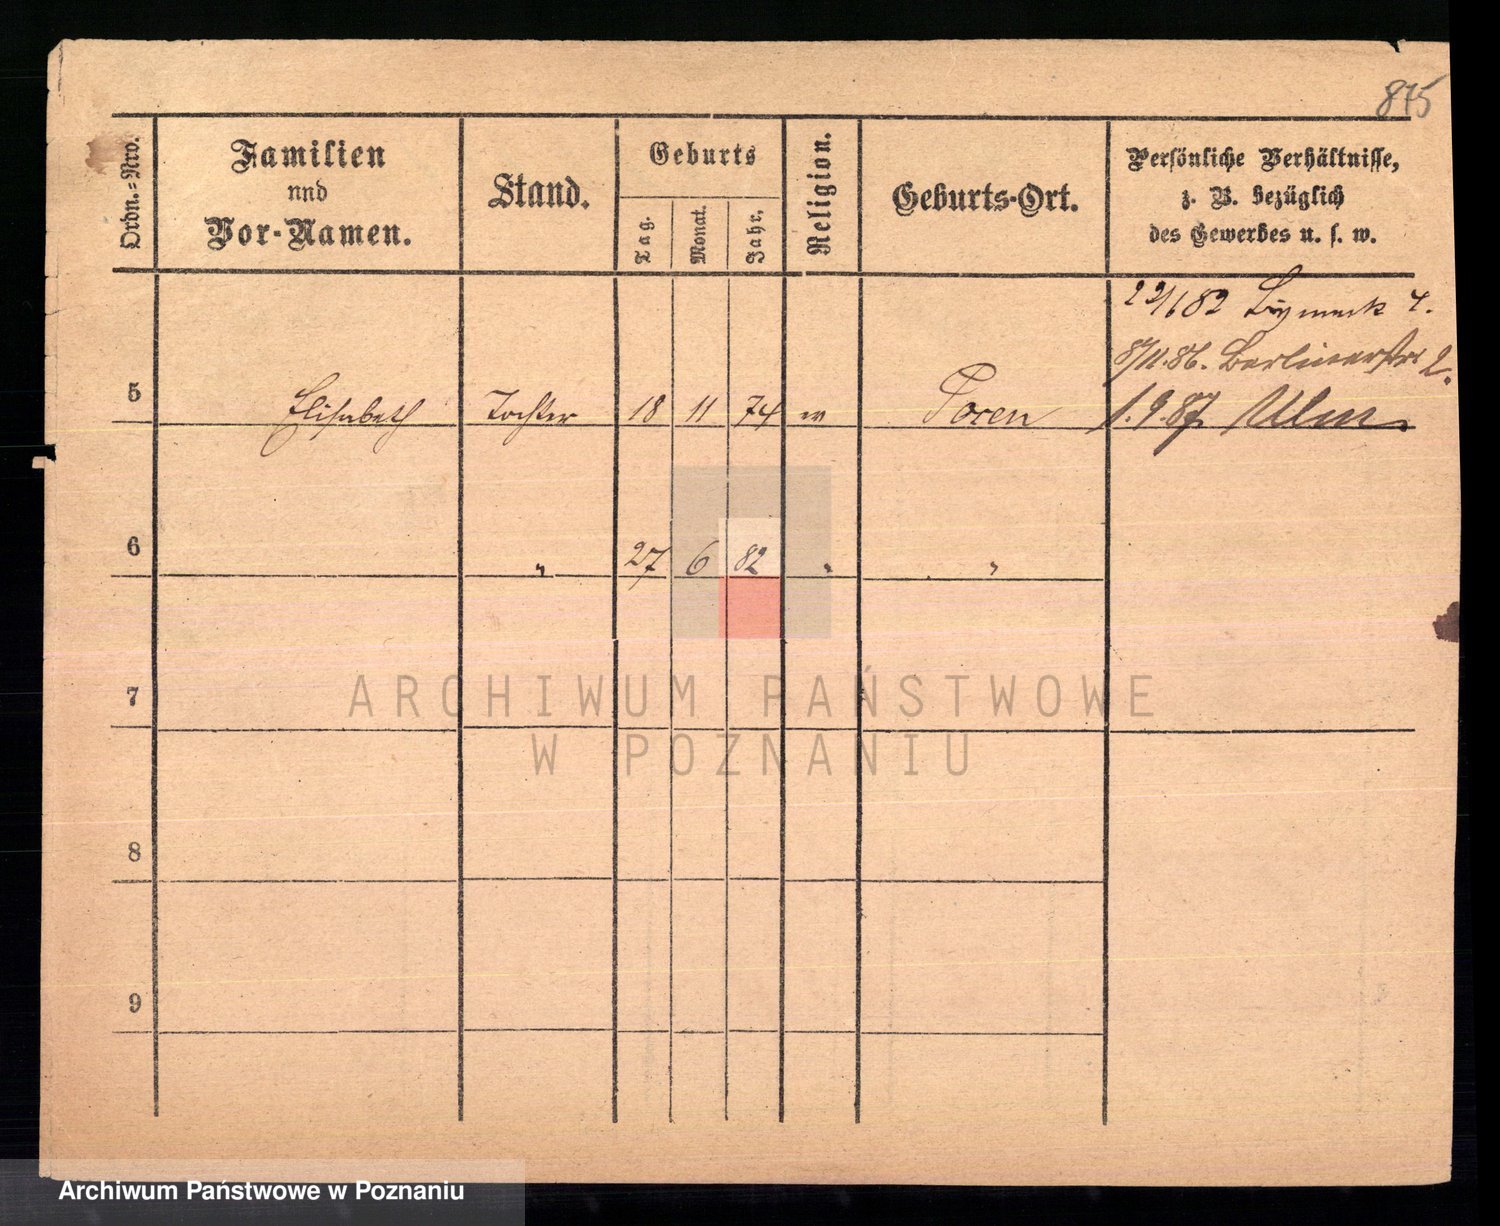 875
Ordn.=Nro.
Familien
und
Vor-Namen.
Stand.
Geburts
Tag.
Monat.
Jahr.
Religion.
Geburts-Ort.
Persönliche Verhältnisse,
z. B. bezüglich
des Gewerbes u. s. w.
82
4.
8/11.86. Berlinerstr. 2.
5 Elisabeth Tochter 18 11 74 Posen 1.9.87. Ulm.
6 " 27 6 82 " "
7
8
9
ARCHIWUM PAŃSTWOWE
W POZNANIU
Archiwum Państwowe w Poznaniu